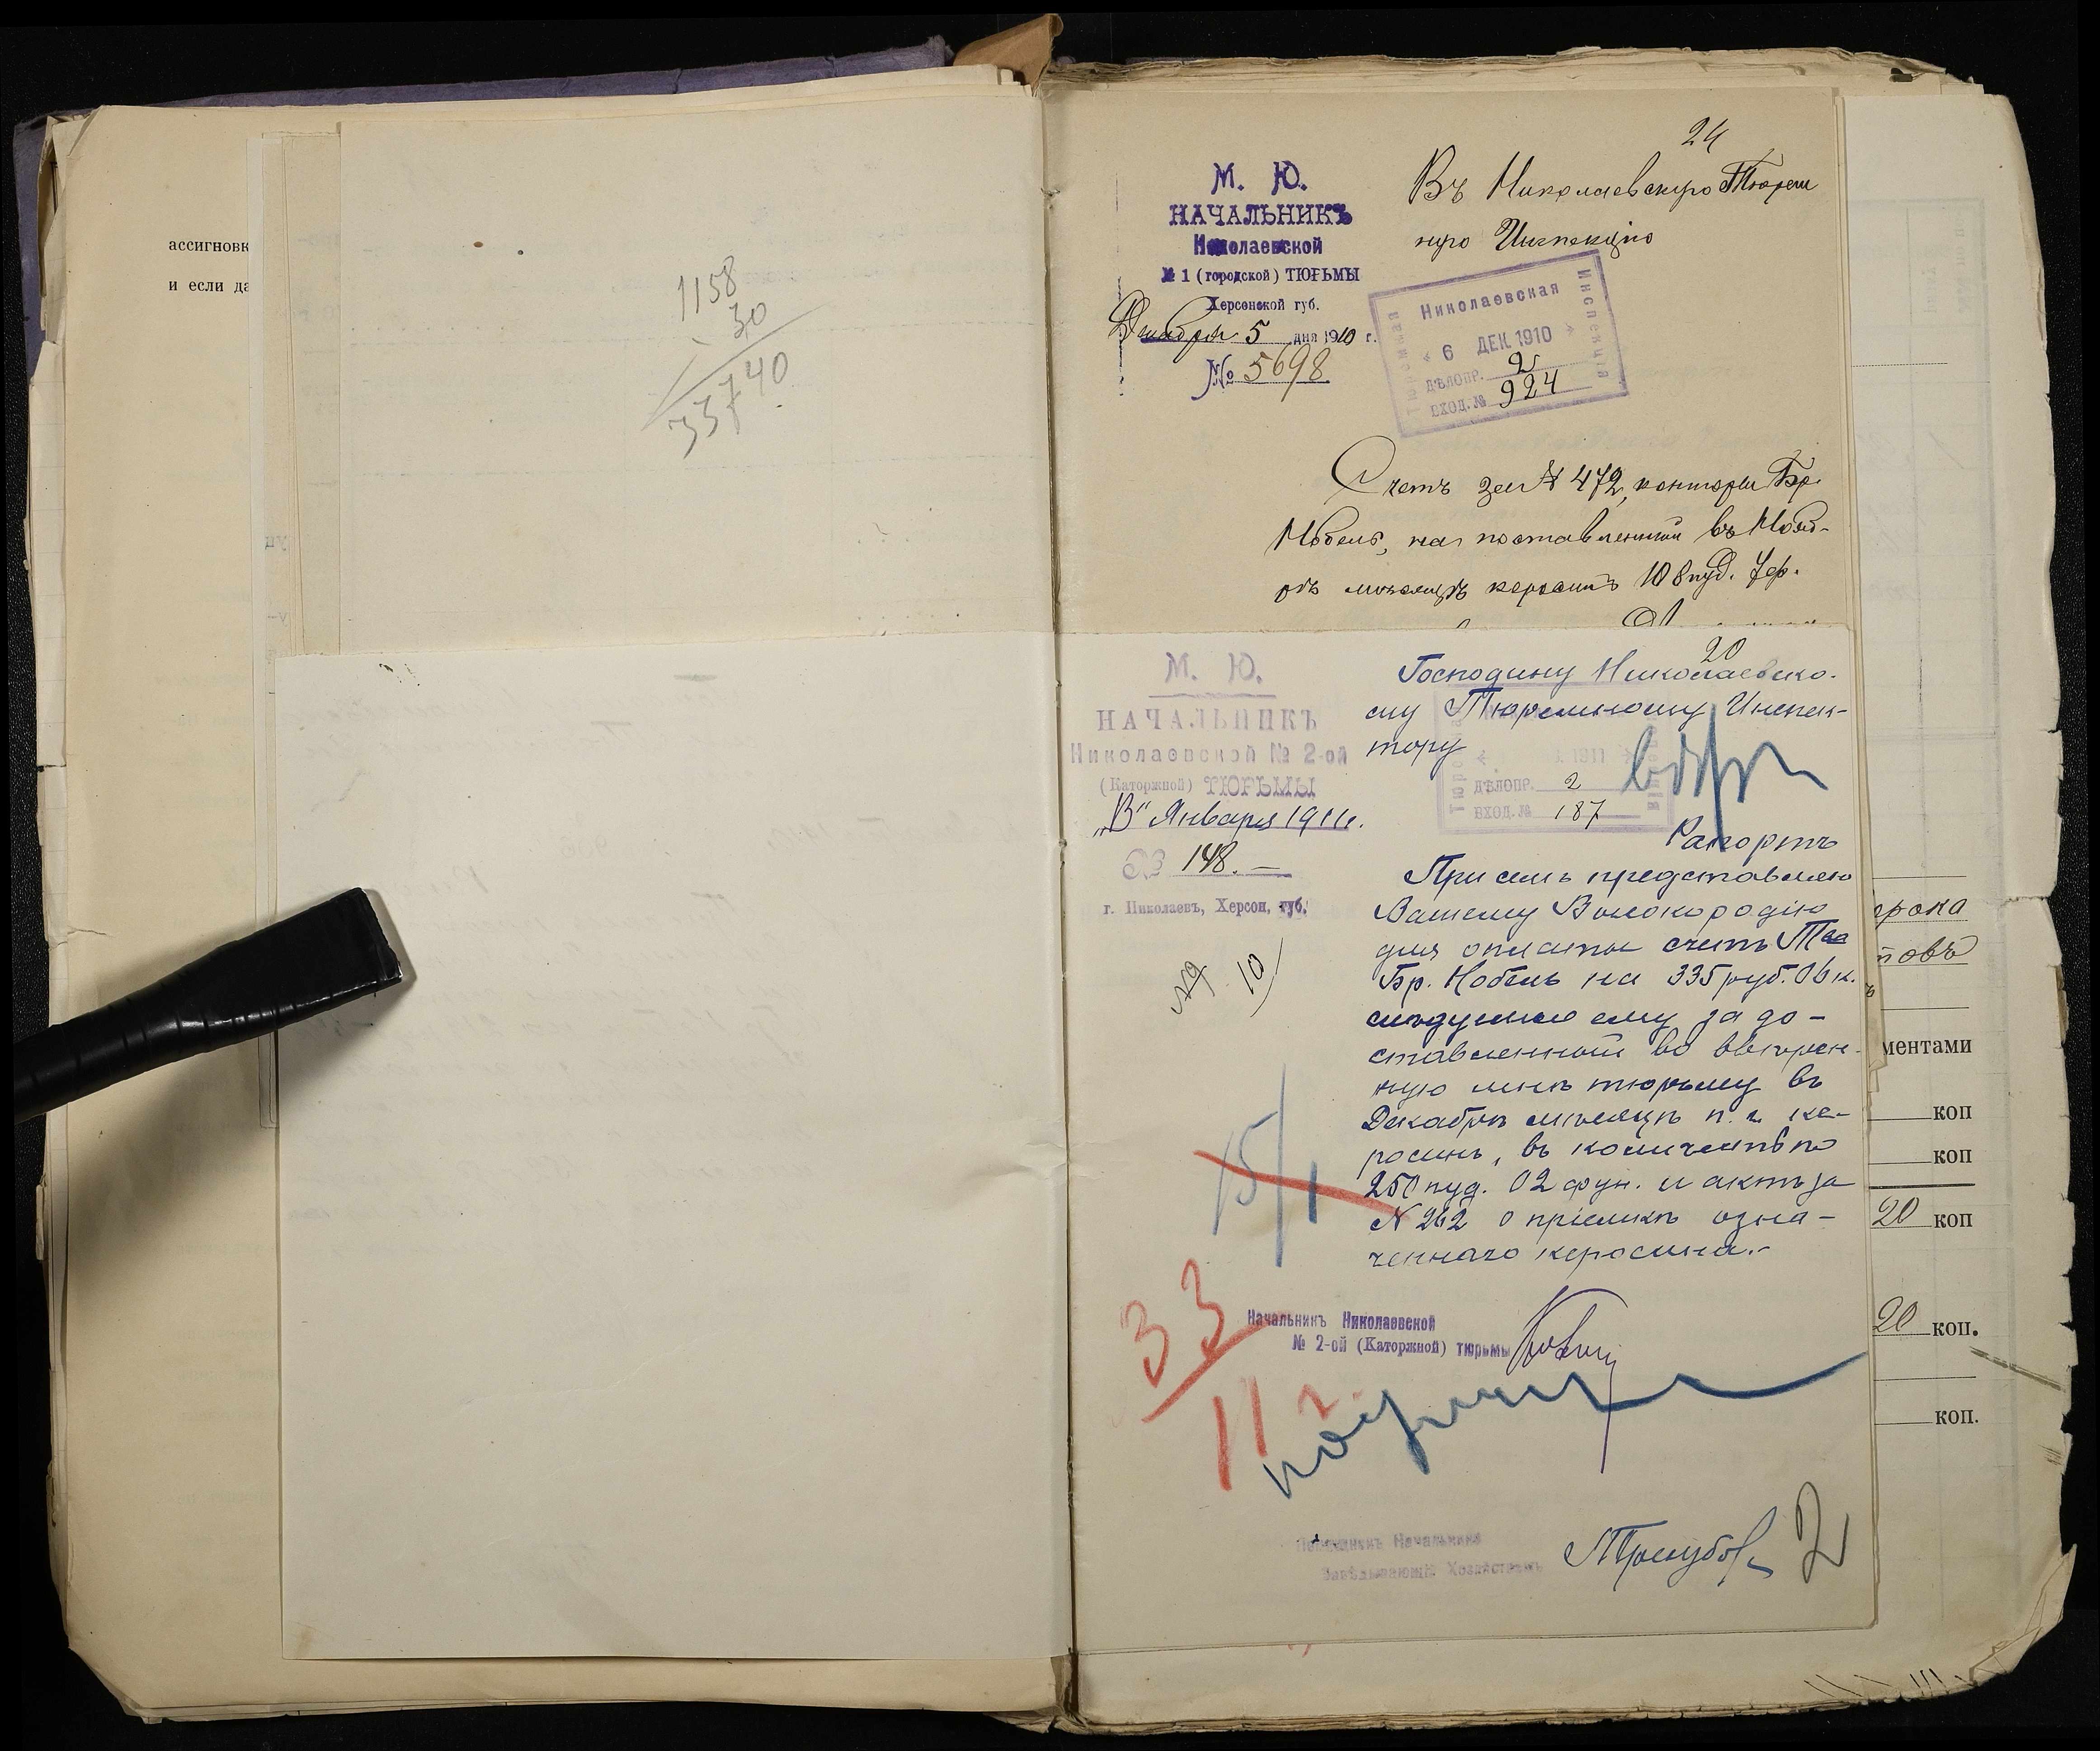 ассигновк
и если да
1158
30
33740
24
М. Ю.
НАЧАЛЬНИКЪ
Николаевской
№ 1 (городской) ТЮРЬМЫ
Херсонской губ.
Декабря 5 дня 1910 г.
№ 5698
Въ Николаевскую Тюрем
ную Инспекцію
Николаевская
Тюремная
Инспекція
« 6 ДЕК 1910 »
ДѢЛОПР. 2
ВХОД. № 924
Счетъ за № 472, конторы Бр.
Нобель, на поставленный въ Нояб-
рѣ мѣсяцѣ керосинъ 108 пуд. 7 ф.
20
М. Ю.
НАЧАЛЬНИКЪ
Николаевской № 2-ой
(Каторжной) ТЮРЬМЫ
„13" Января 1911 г.
№ 148. —
г. Николаевъ, Херсон. губ.
Господину Николаевско-
му Тюремному Инспек-
тору
1911
ДѢЛОПР. 2
ВХОД. № 187
Рапортъ
При семъ представляю
Вашему Высокородію
для оплаты счетъ Т-ва
Бр. Нобель на 335 руб. 06 к.
слѣдуемые ему за до-
ставленный во ввѣрен-
ную мнѣ тюрьму въ
Декабрѣ мѣсяцѣ п. г. ке-
росинъ, въ количествѣ
250 пуд. 02 фун. и актъ за
№ 262 о пріемкѣ озна-
ченнаго керосина.-
10
15/1
33
11
Начальникъ Николаевской
№ 2-ой (Каторжной) тюрьмы
Помощникъ Начальника
Завѣдывающій Хозяйствомъ
2
рока
товъ
ментами
коп
коп
20 коп
20 коп.
коп.